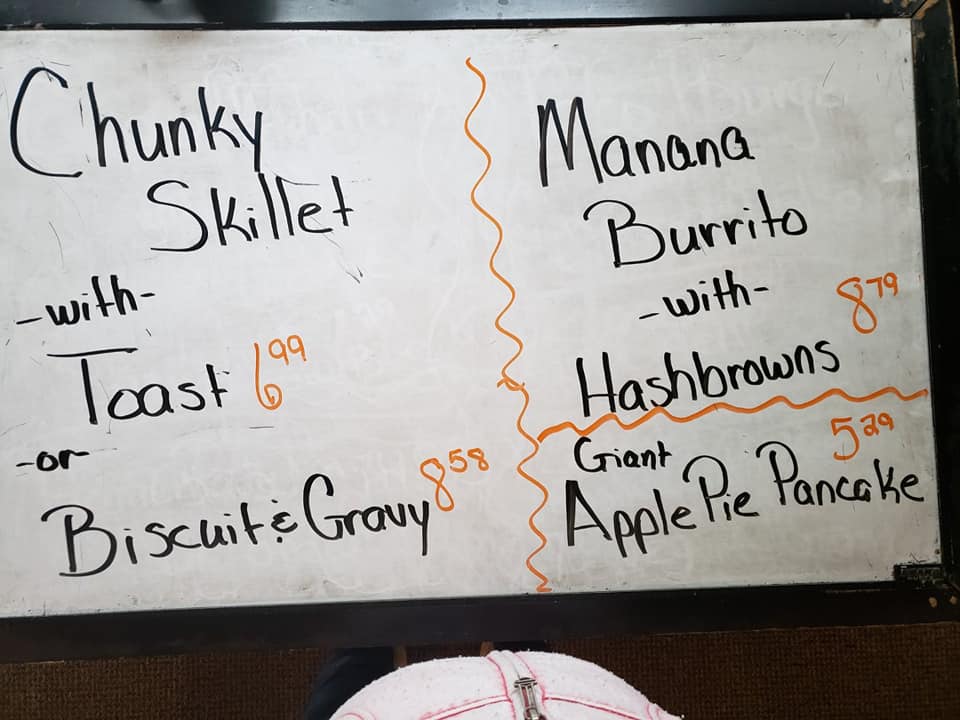 Chunky
Skillet
-with-
Toast 6.99
-or-
Biscuit & Gravy 8.58
Manana
Burrito
-with- 8.79
Hashbrowns
Giant 5.29
Apple Pie Pancake